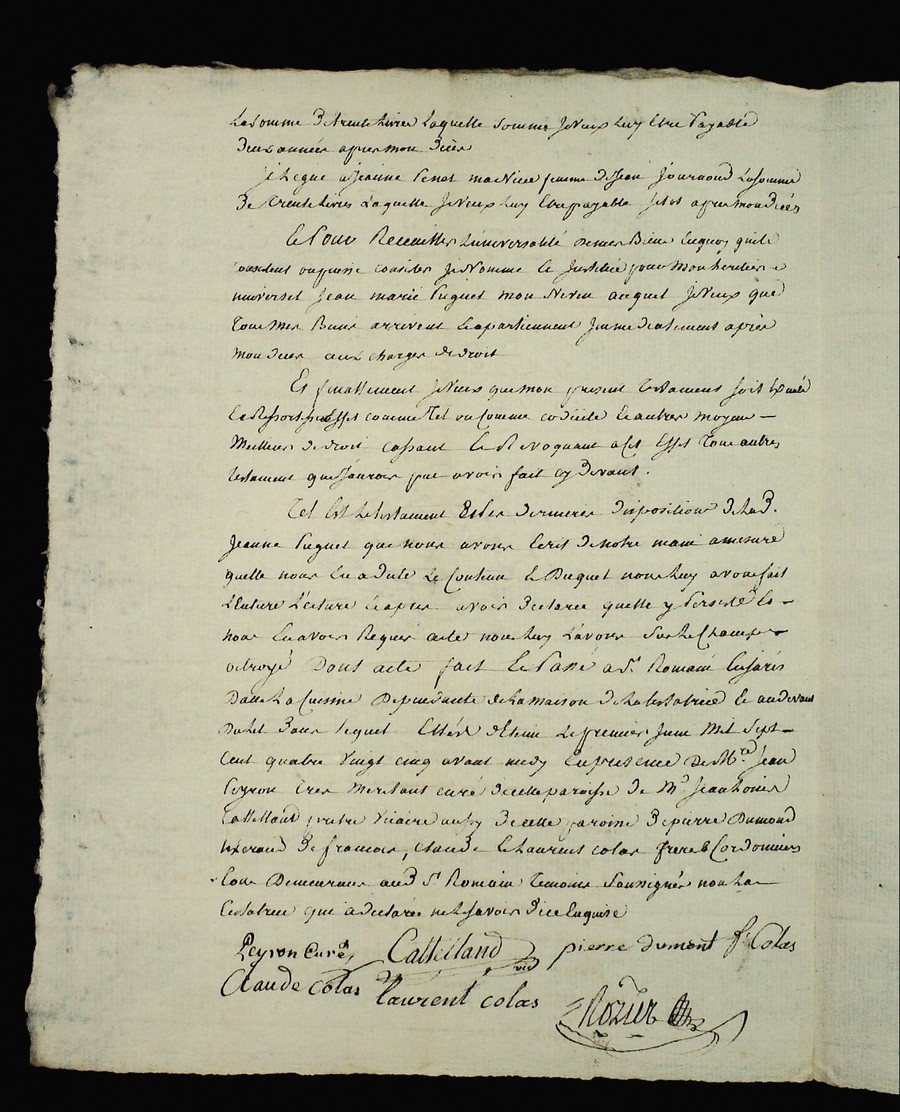 La somme de trente Livres Laquelle somme je veux luy Etre payable
deux années apres mon deces
je Legue a jeanne penet ma Niece femme de jean journoud La somme
De trente Livres Laquelle je veux luy Etre payable sitot apres mon deces
Et Pour Recueillir L'universalité de mes Biens En quoy qu'ils
consistent ou puisse consister je Nomme Et institue pour mon heritier
universel jean marie puquet mon Neveu auquel je veux que
tous mes Biens arrivent Et apartiennent immediatement apres
mon deces aux charges de droit
Et finallement je veux que mon present testament soit Executé
Et Ressorte son Effet comme tel ou comme codicile Et autres moyens
Meilleur de droit cassant Et Revoquant a Cet Effet tous autres
testament que j'aurois pue avoir fait cy devant.
Tel Est Le testament Et les dernieres dispositions de Lad.
jeanne puquet que nous avons Ecrit de notre main a mesure
quelle nous En a dicté Le Contenu Et Duquel nous luy avons fait
L'entiere Lecture Et apres avoir declarée quelle y persiste Et
nous En avoir Requis acte nous luy L'avons sur Le Champ
octroyé Dont acte fait Et Passé a St Romain En jarés
Dans La Cuisine Dependante de La maison de La testatrice Et au devant
Du Lit dans lequel Elle Est detenue Le premier juin Mil Sept
Cent quatre Vingt cinq avant midy En presence De Mre jean
peyron curé de cette paroisse De Mr jean Louis
Cattelland pretre Vicaire aussy de cette paroisse De pierre Dumond
De francois, Claude Et Laurent colas freres Cordonniers
tous Demeurans aud St Romain temoins soussignés non La
testatrice qui a declaree ne Le savoir de ce Enquise
Peyron Curé, Cattelland vic pierre dumont f. Colas
Claude colas laurent colas
Rozier